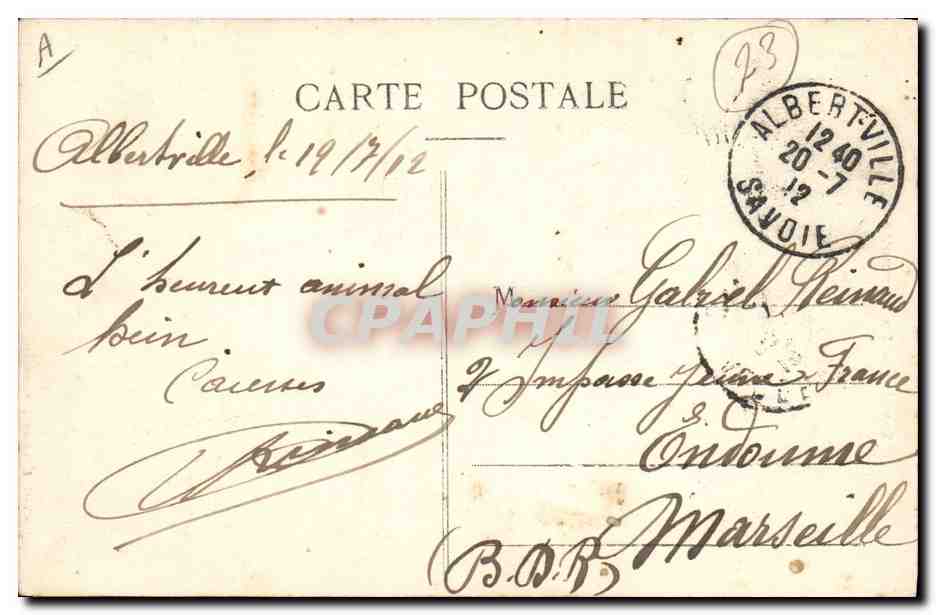 A
23
CARTE POSTALE
ALBERTVILLE
12 40
20 -7
12
SAVOIE
Albertville, le 19/7/12
L'heureux animal
hein
Caresses
Reinaud
Monsieur Gabriel Reinaud
2 Impasse Jeune France
Endoume
Marseille
(B.D.R)
CPAPHIL